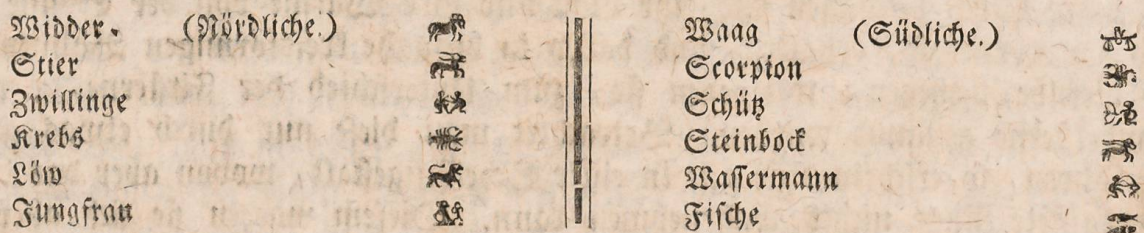 Widder. (Nördliche.)
Stier
Zwillinge
Krebs
Löw
Jungfrau
Waag (Südliche.)
Scorpion
Schütz
Steinbock
Wassermann
Fische